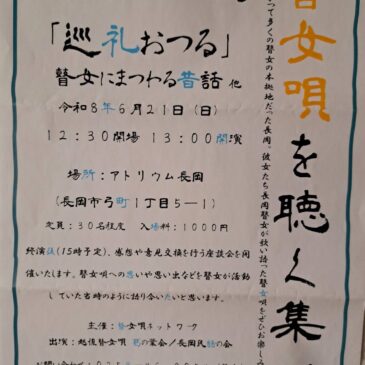 瞽女唄を聴く集
って多くの瞽女の本拠地だった長岡。彼女たち長岡瞽女が歌い語った瞽女唄をぜひお楽しみ
「巡礼おつる」
瞽女にまつわる昔話 他
令和8年6月21日（日）
12：30開場 13：00開演
場所：アトリウム長岡
（長岡市弓町1丁目5－1）
定員：30名程度 入場料：1000円
終演後（15時予定）、感想や意見交換を行う座談会を開
催いたします。瞽女唄への思いや思い出などを瞽女が活動
していた当時のように語り合いたいと思います。
主催：瞽女唄ネットワーク
出演：越後瞽女唄 葛の葉会／長岡民話の会